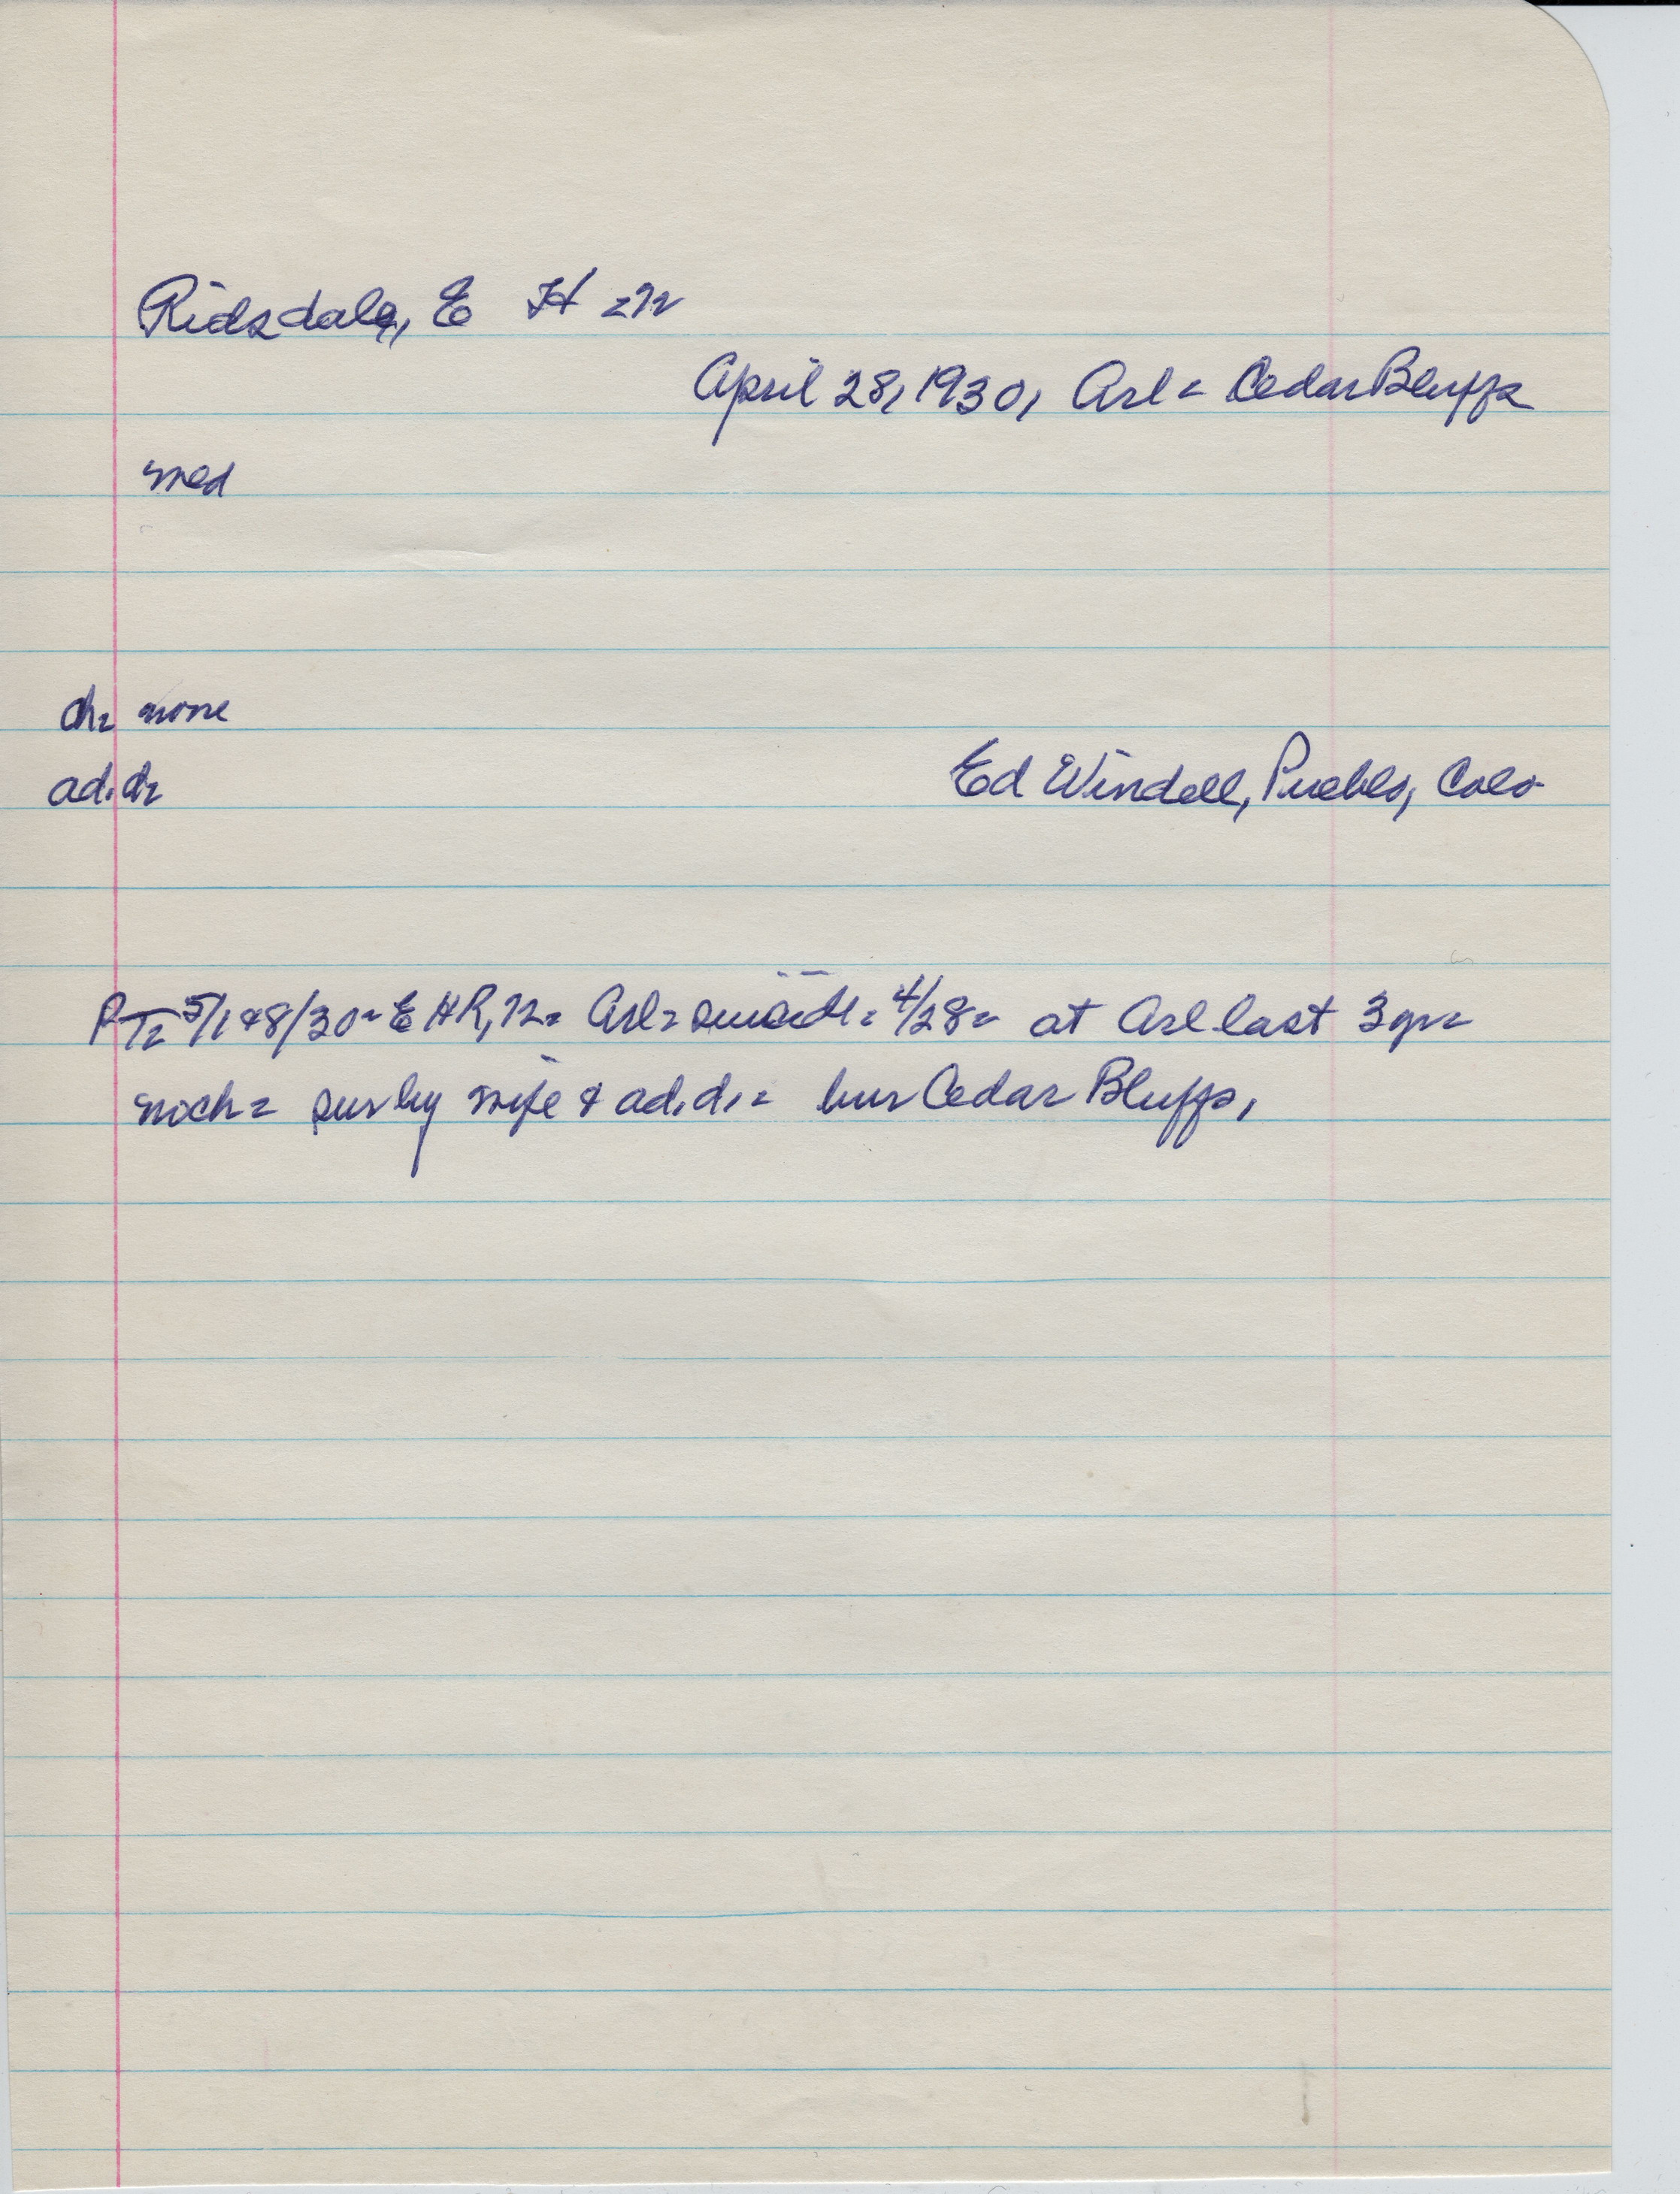 Ridsdale, E H = 72
April 28, 1930, Arl = Cedar Bluffs
med
ch = none
ad. d =
Ed Windell, Pueblo, Colo
PT = 5/1 & 8/30 = E H R, 72 = Arl = suicide = 4/28 = at Arl last 3 yr =
noch = sur by wife & ad. d. = bur Cedar Bluffs,